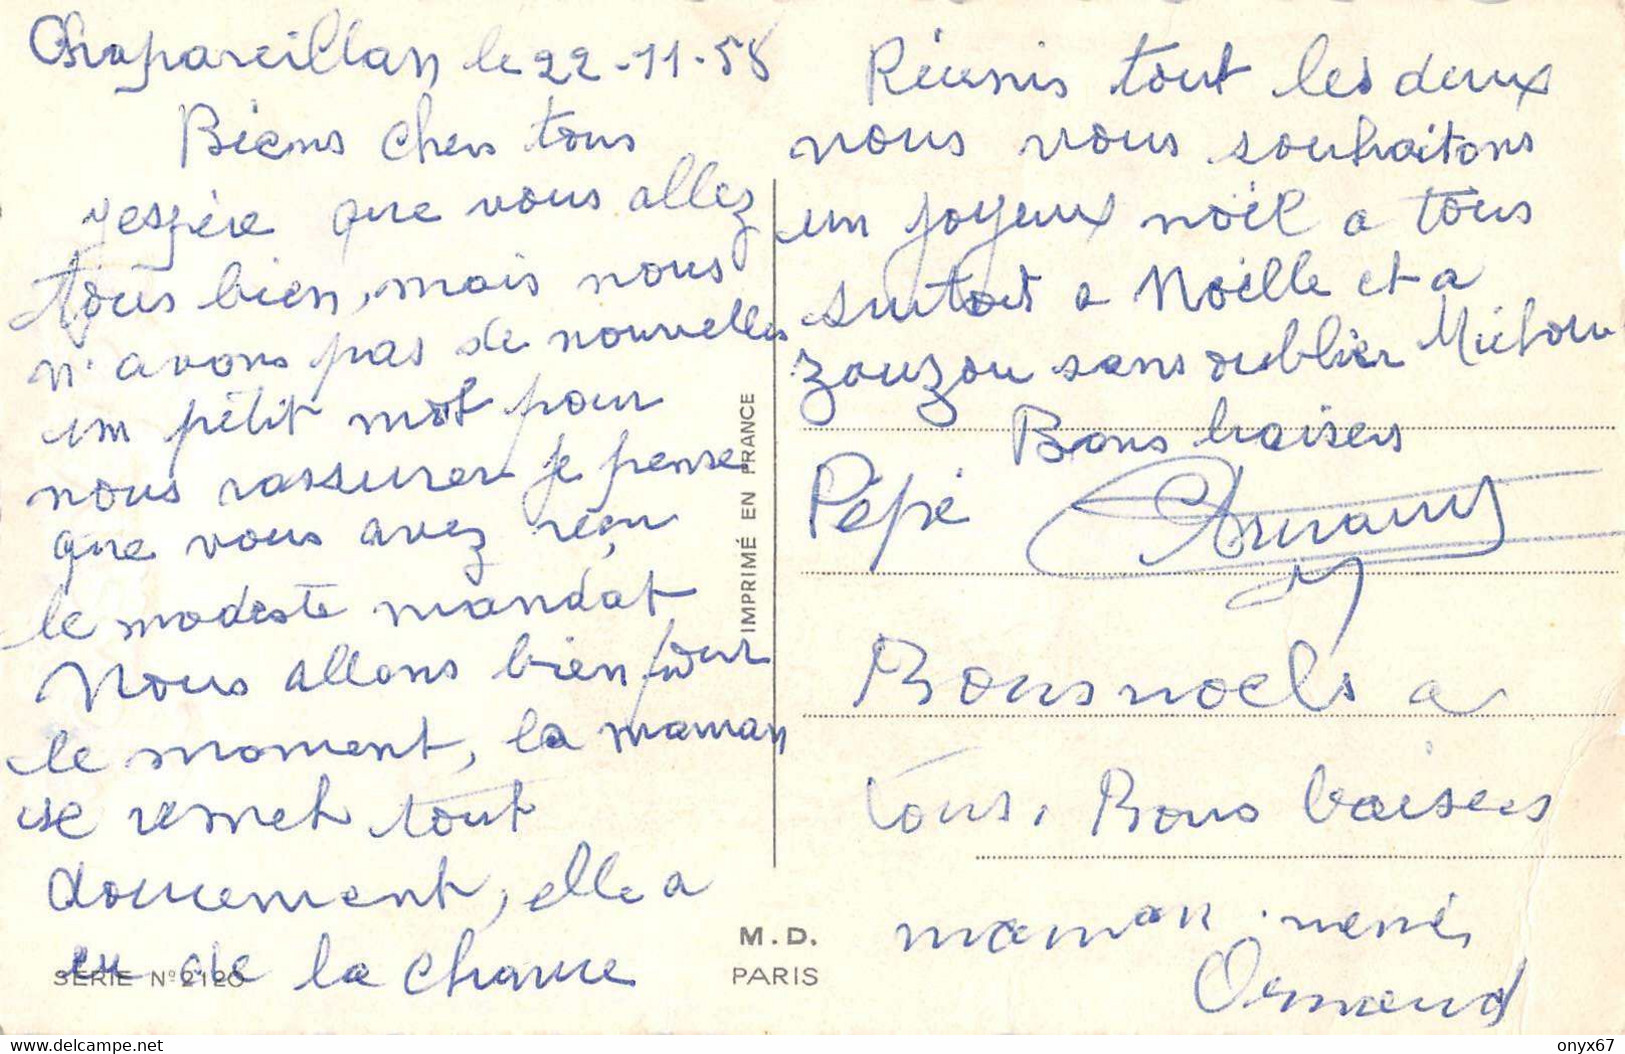 Chapareillan le 22-11-58
Biens chers tous
j'espère que vous allez
tous bien, mais nous
n'avons pas de nouvelles
um petit mot pour
nous rassurer je pense
que vous avez reçu
le modeste mandat
Nous allons bien pour
le moment, la maman
se remet tout
doucement, elle a
eu de la chance
SÉRIE N° 2120
IMPRIMÉ EN FRANCE
M.D.
PARIS
Réunis tout les deux
nous vous souhaitons
um joyeux noël a tous
surtout a Noëlle et a
zouzou sans oublier Michou
Bons baisers
Pépé
Bons noels a
tous, Bons baisers
maman
onyx67